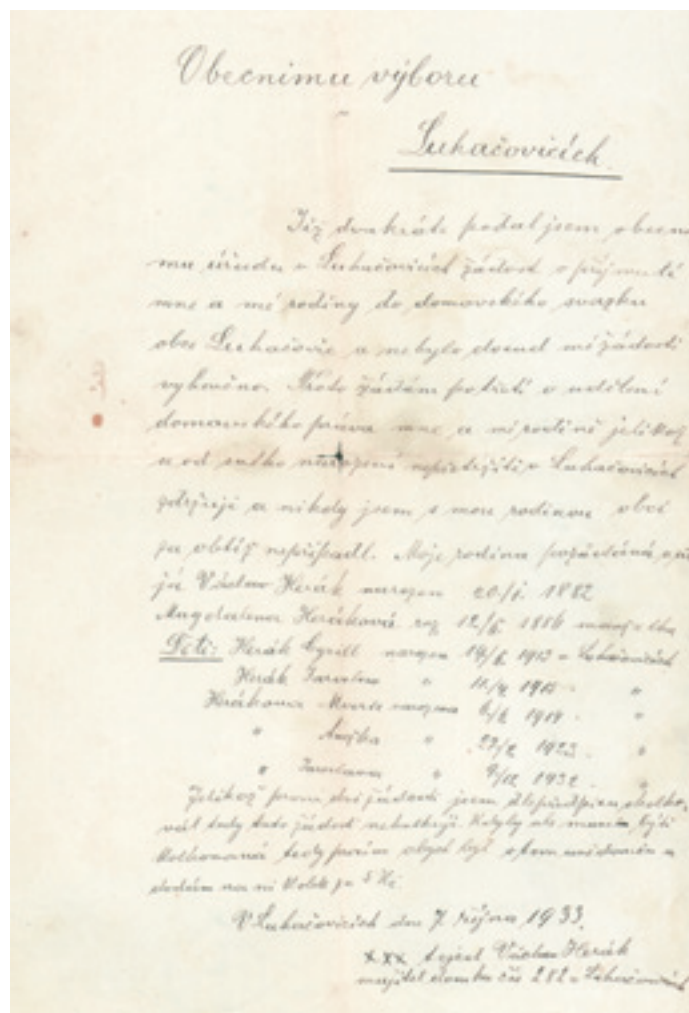 Obecnímu výboru
Luhačovicích.
Již dvakráte podal jsem obecní
mu úřadu v Luhačovicích žádost o přijmutí
mne a mé rodiny do domovského svazku
obce Luhačovic a nebylo dosud mé žádosti
vyhověno. Proto žádám potřetí o udělení
domovského práva mne a mé rodině jelikož
se od narození v Luhačovicích
zdržuji a nikdy jsem s mou rodinou obci
za obtíž nepřipadl. Moje rodina
já Václav Herák narozen 20./1. 1882
Magdalena Heráková roz 12/5. 1886 manželka
Děti: Herák Cyrill narozen 14/2 1913 v Luhačovicích
Herák Jaroslav " 11/4 1915 "
Herákova narozena 6/2 1919 "
" Anežka " 27/2 1923 "
" Jaroslava " 9/12 1932 "
Jelikož první dvě žádosti jsem
val tedy tuto žádost nekolkuji. Kdyby ale musela býti
kolkovaná tedy prosím abych byl o tom uvědoměn a
dodám na ni kolek za 5 Kč.
V Luhačovicích dne 7. října 1933.
xxx Václav Herák
majitel domku čís 282 v Luhačovicích